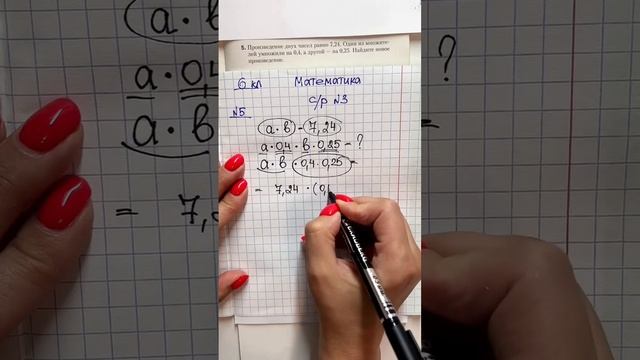 5. Произведение двух чисел равно 7,24. Один из множите-
лей умножили на 0,4, а другой — на 0,25. Найдите новое
произведение.
6 кл Математика
с/р №3
№5
а · в = 7,24
а · 0,4 · в · 0,25 = ?
а · в · 0,4 · 0,25 =
= 7,24 · (0,